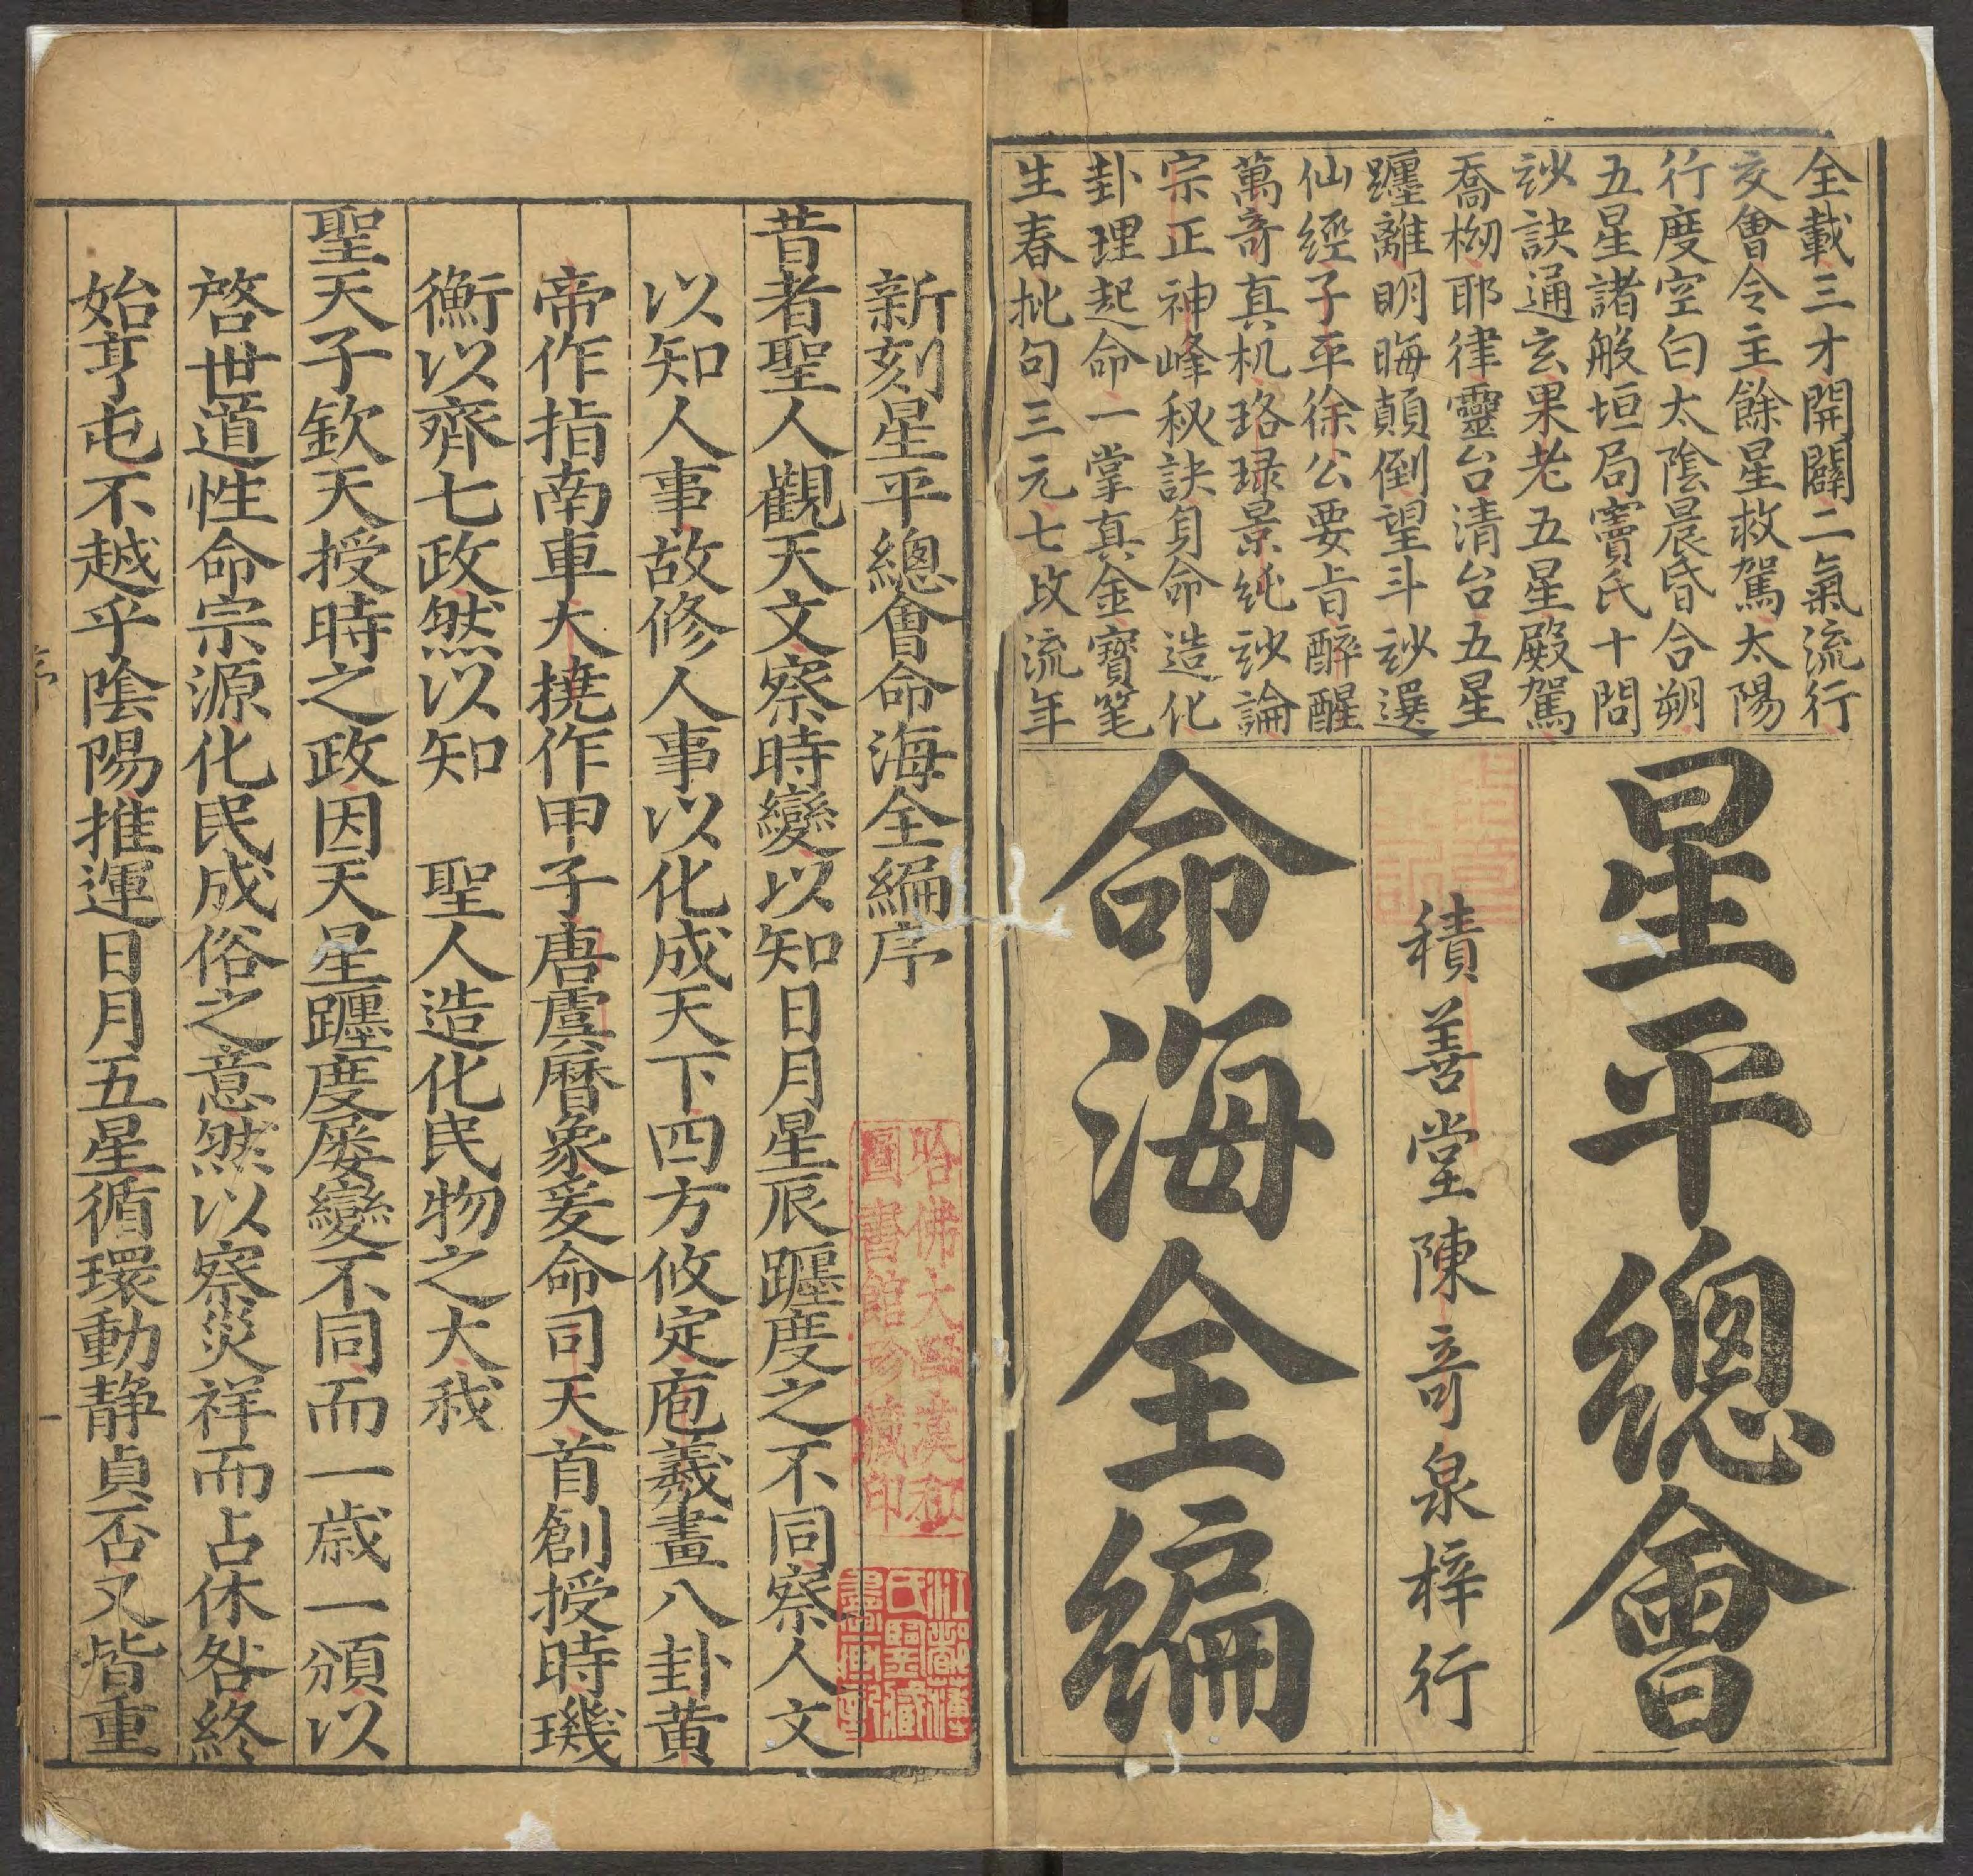 全載三才開闢二氣流行
交會令主餘星救駕太陽
行度空白太陰晨昏合朔
五星諸般垣局竇氏十問
玅訣通玄果老五星殿駕
喬柪耶律靈台清台五星
躔離明晦顛倒望斗玅選
仙經子平徐公要旨醉醒
萬竒真机珞琭景純玅論
宗正神峰秘訣負命造化
卦理起命一掌真金寶笔
生春批句三元七政流年
星平總會
積善堂陳竒泉梓行
命海全編
新刻星平總會命海全編序
昔者聖人觀天文察時變以知日月星辰躔度之不同察人文
以知人事故修人事以化成天下四方攸定庖羲畫八卦黃
帝作指南車大撓作甲子唐虞曆象爰命司天首創授時璣
衡以齊七政然以知　聖人造化民物之大哉
聖天子欽天授時之政因天星躔度屡變不同而一歲一頒以
啓世道性命宗源化民成俗之意然以察災祥而占休咎終
始亨屯不越乎陰陽推運日月五星循環動静貞否又皆重
序
一
哈佛大學漢和
圖書館珍藏印